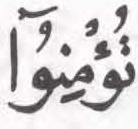 تُؤْمِنُوآ